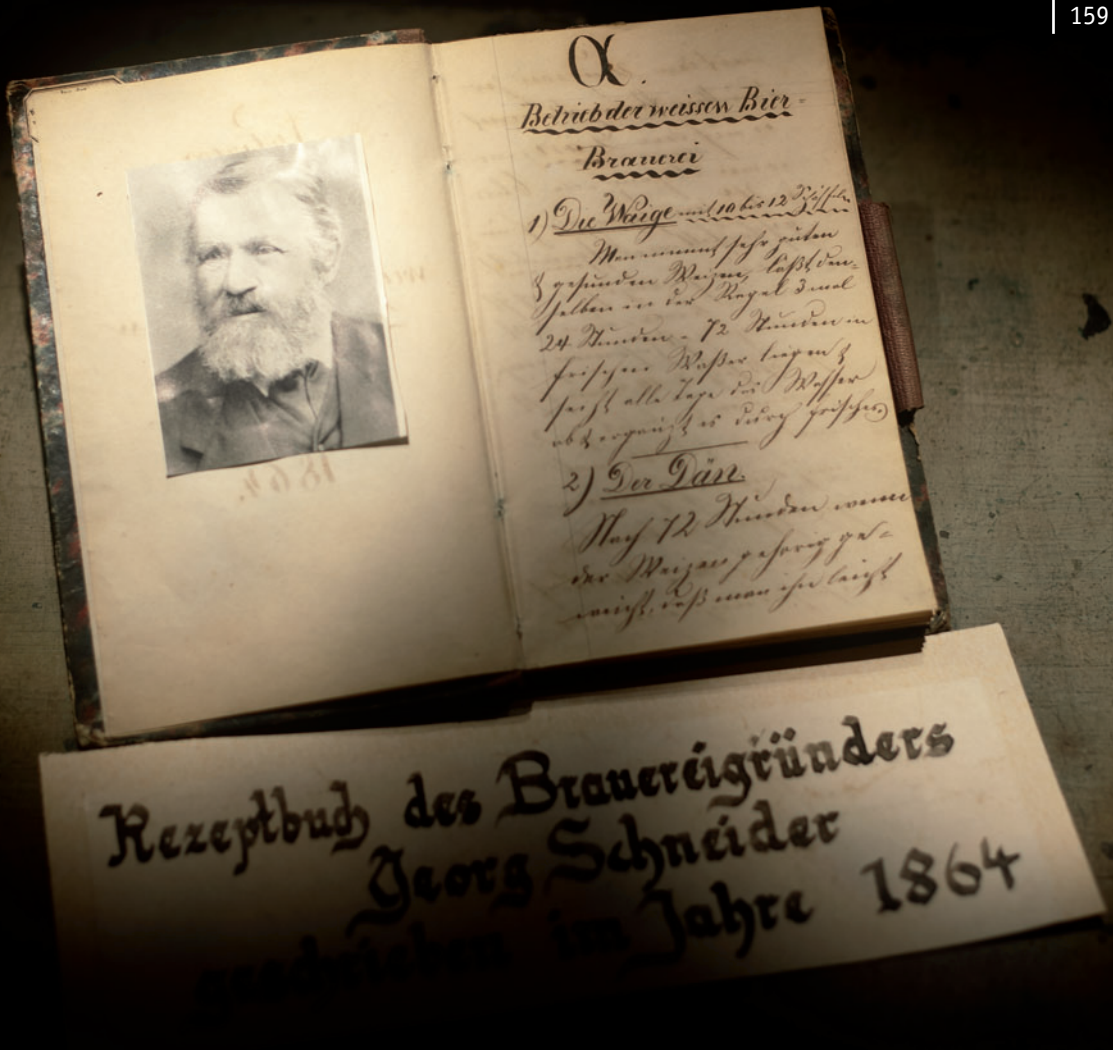 159
α.
Betrieb der weissen Bier-
Brauerei
1) Die Waige mit 10 bis 12 Schäffeln
Man nimmt sehr guten
& gesunden Weizen, laßt den-
selben in der Regel 3 mal
24 Stunden = 72 Stunden in
frischen Waßer liegen &
seiht alle Tage das Wasser
ab & ergänzt es durch frisches
2) Der Dän.
Nach 72 Stunden wenn
der Weizen gehörig ge-
weicht, daß man ihn leicht
1864.
Rezeptbuch des Brauereigründers
Georg Schneider
geschrieben im Jahre 1864